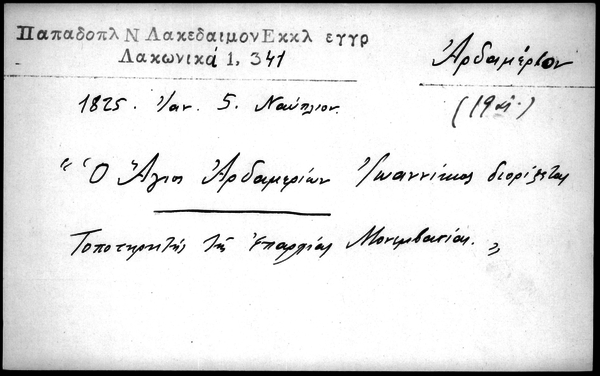 Παπαδοπλ Ν Λακεδαιμον Εκκλ εγγρ
Λακωνικά 1, 341
Ἀρδαμέριον
(19 αἰ.)
1825. Ἰαν. 5. Ναύπλιον.
"Ὁ Ἅγιος Ἀρδαμερίων Ἰωαννίκιος διορίζεται
Τοποτηρητής τῆς Ἐπαρχίας Μονεμβασίας."